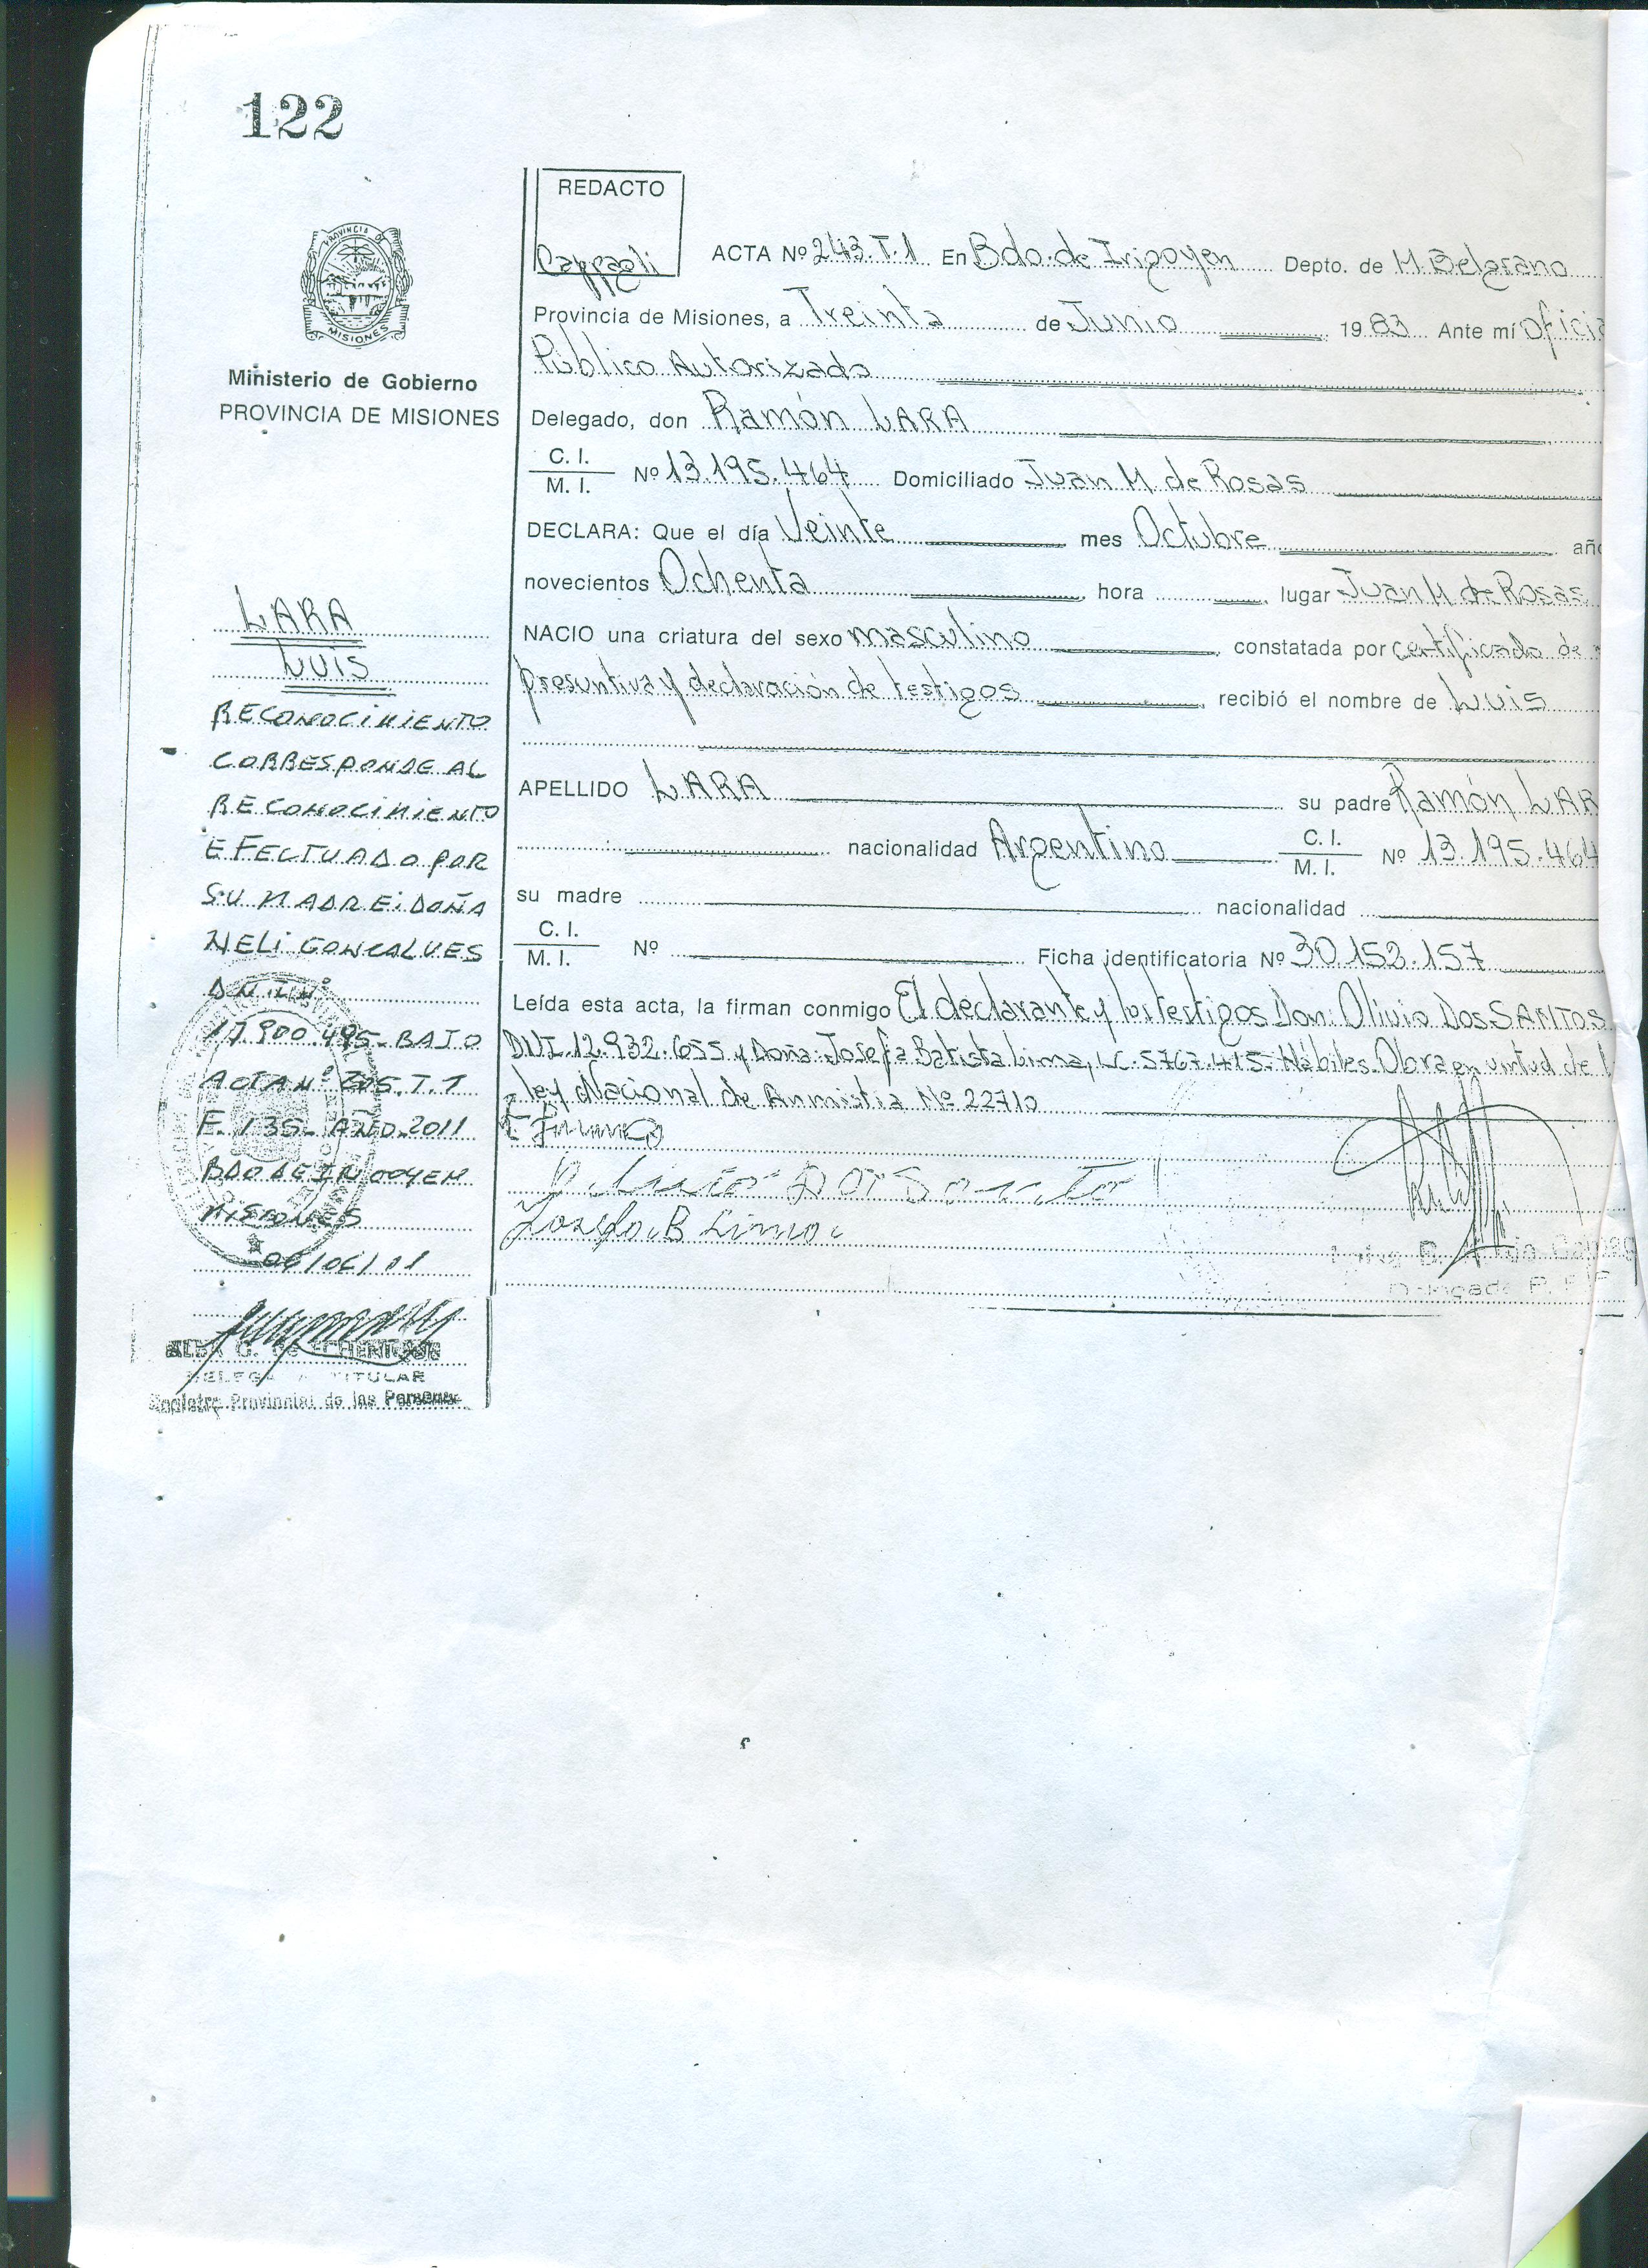 122
REDACTO
Cappagli
ACTA Nº 243.T.1 En Bdo. de Irigoyen Depto. de M. Belgrano
PROVINCIA DE
MISIONES
Provincia de Misiones, a Treinta de Junio 1983 Ante mí Oficia
Público Autorizado
Ministerio de Gobierno
PROVINCIA DE MISIONES
Delegado, don Ramón LARA
C. I.
M. I. Nº 13.195.464 Domiciliado Juan M. de Rosas
DECLARA: Que el día Veinte mes Octubre añ
novecientos Ochenta hora lugar Juan M de Rosas
NACIO una criatura del sexo masculino, constatada por certificado de
presuntiva y declaración de testigos, recibió el nombre de Luis
APELLIDO LARA su padre Ramón LAR
nacionalidad Argentino C. I.
M. I. Nº 13.195.464
su madre nacionalidad
C. I.
M. I. Nº Ficha identificatoria Nº 30.152.157
Leída esta acta, la firman conmigo El declarante y los testigos Don: Olivio Dos SANTOS
DNI.12.932.655 y Doña: Josefa Batista Lima, LC. 5.767.415. Hábiles. Obra en virtud de l
ley Nacional de Anmistia Nº 22710
Josefa B Lima
LARA
LUIS
RECONOCIMIENTO
CORRESPONDE AL
RECONOCIMIENTO
EFECTUADO POR
SU MADRE: DOÑA
NELI GONCALVES
D.N.I. Nº
17.900.495- BAJO
ACTA Nº T.1
F. 135- AÑO 2011
BDO DE IRIGOYEN
MISIONES
06/06/11
DELEGADA TITULAR
Registro Provincial de las Personas